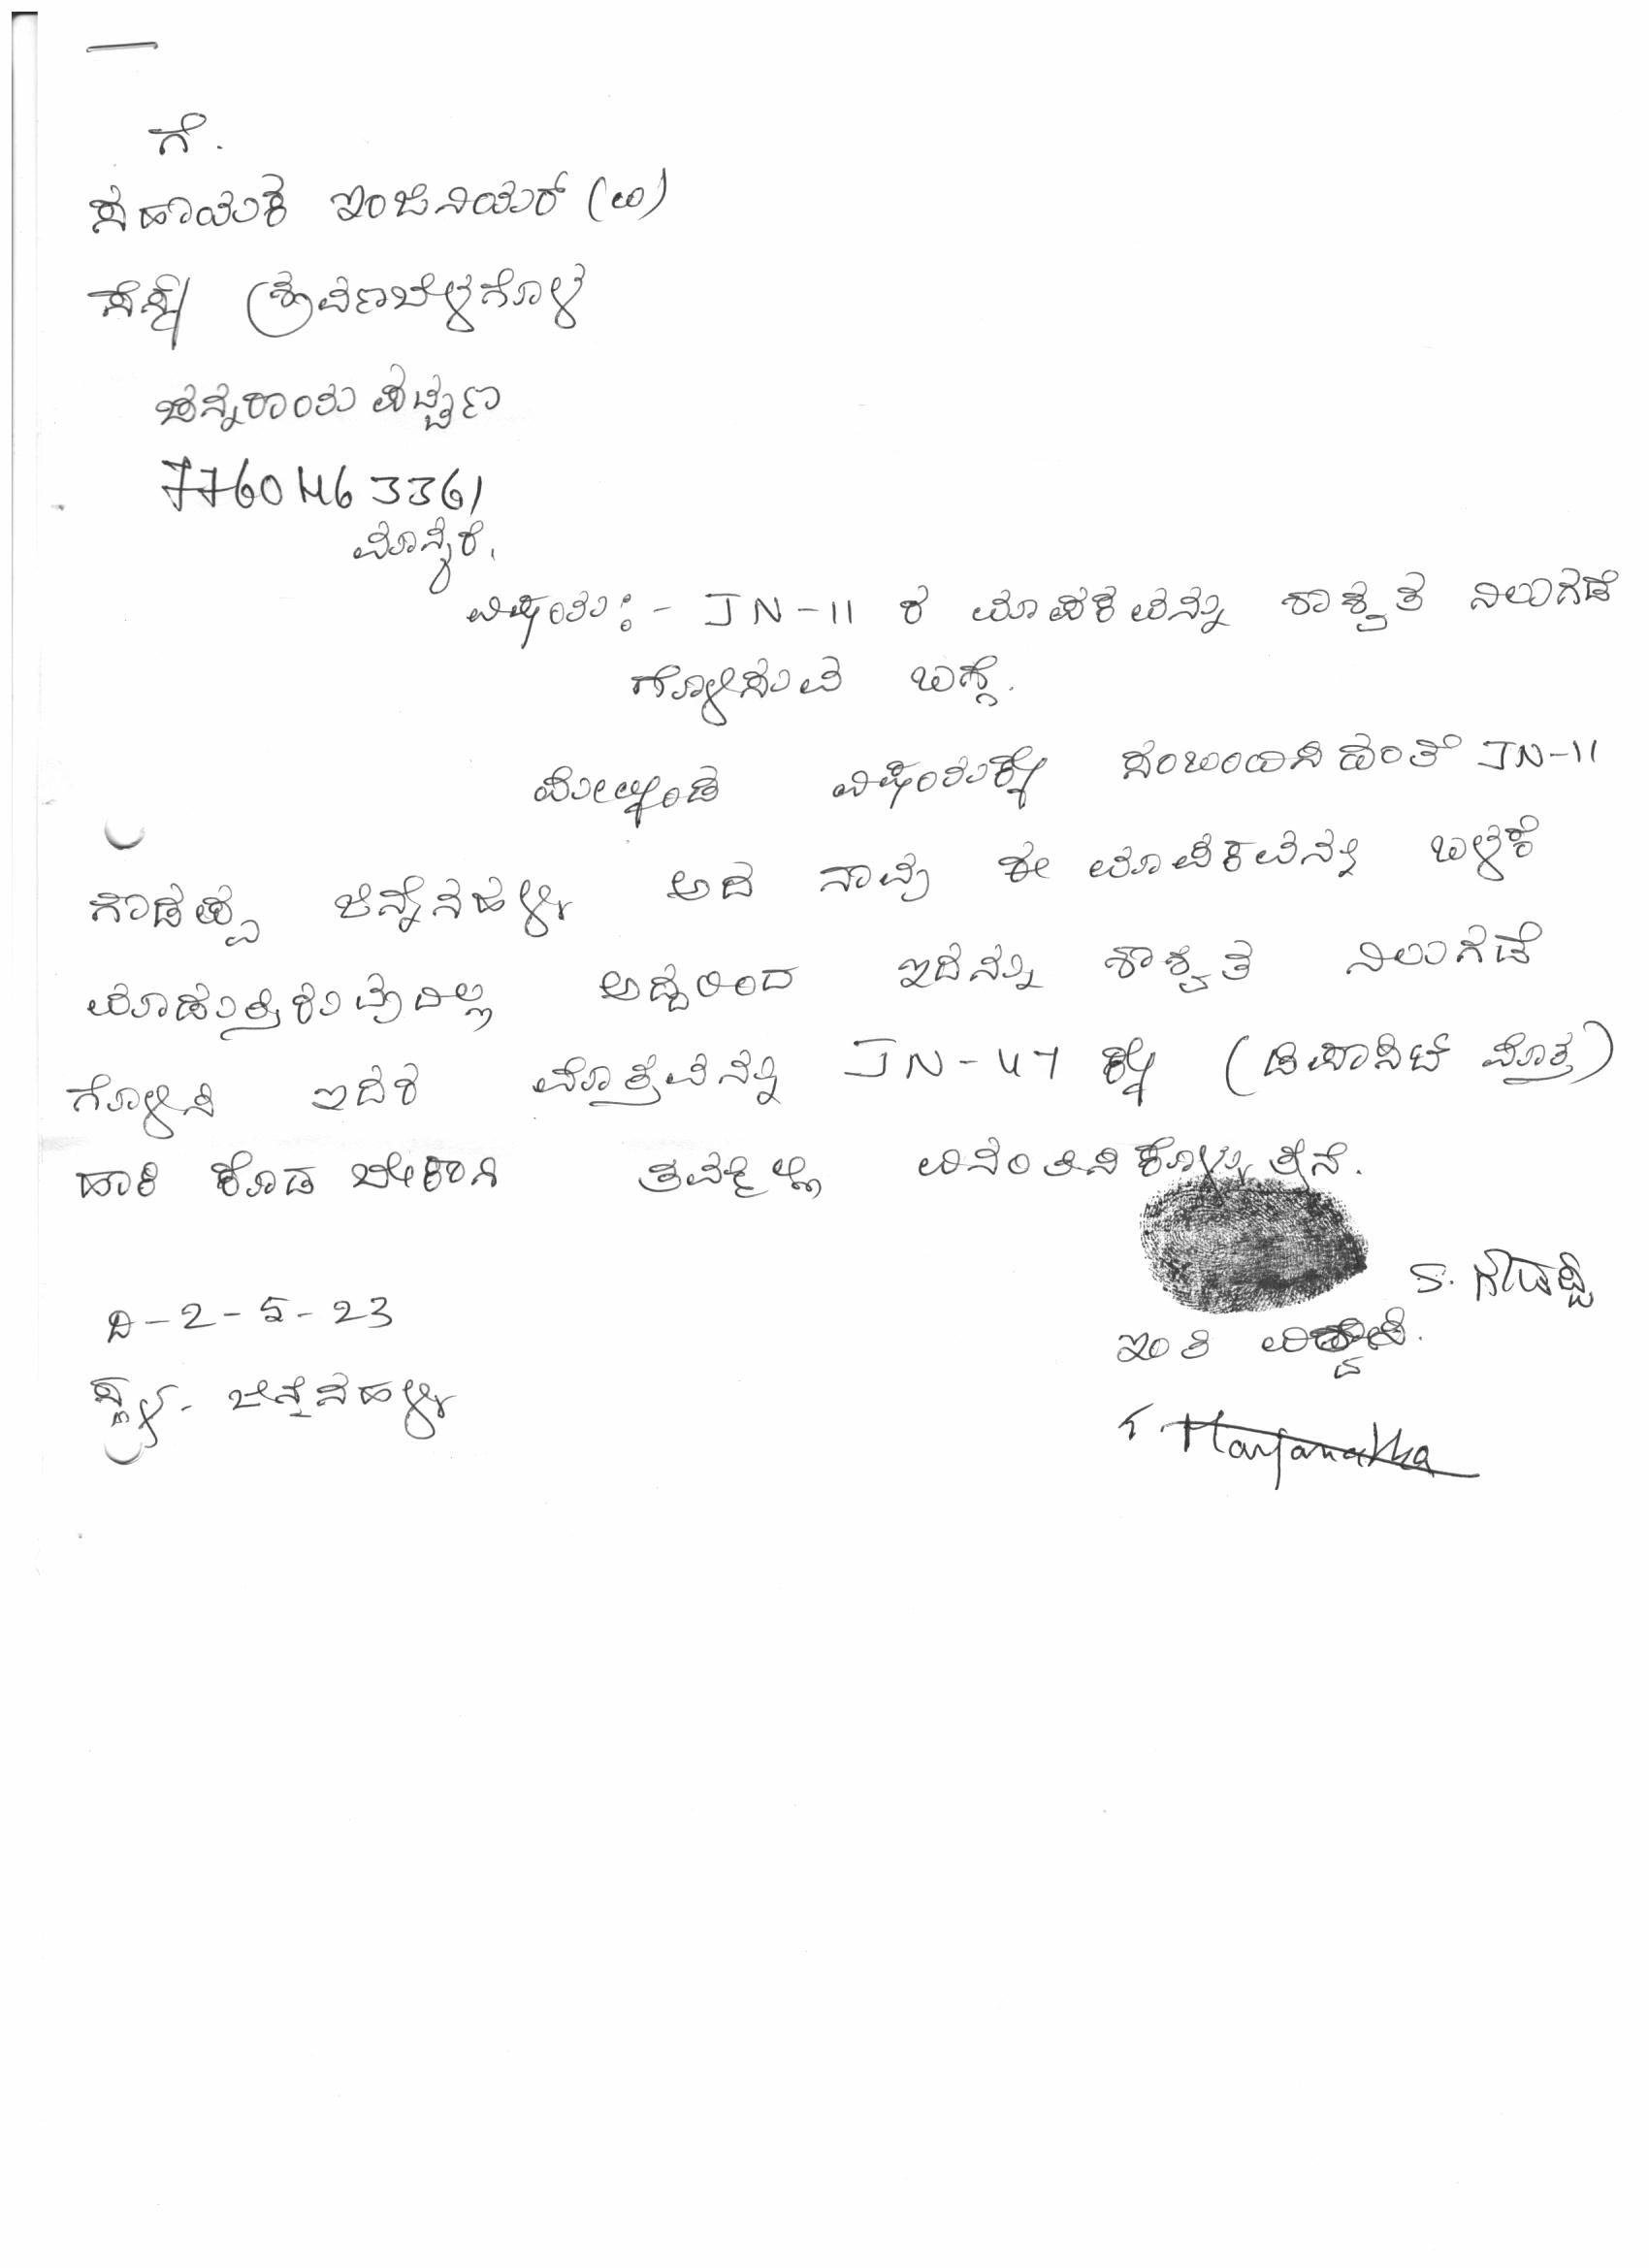 ಗೆ.
ಸಹಾಯಕ ಇಂಜಿನಿಯರ್ (ವಿ)
ಸೆಸ್ಕ್ ಶ್ರವಣಬೆಳಗೊಳ
ಚನ್ನರಾಯಪಟ್ಟಣ
7760463361
ಮಾನ್ಯರೆ,
ವಿಷಯ :- JN-11 ರ ಮಾಪಕವನ್ನು ಶಾಶ್ವತ ನಿಲುಗಡೆ
ಗೊಳಿಸುವ ಬಗ್ಗೆ.
ಮೇಲ್ಕಂಡ ವಿಷಯಕ್ಕೆ ಸಂಬಂಧಿಸಿದಂತೆ JN-11
ಗೌಡಪ್ಪ ಜಿನ್ನೇನಹಳ್ಳಿ ಆದ ನಾವು ಈ ಮಾಪಕವನ್ನು ಬಳಕೆ
ಮಾಡುತ್ತಿರುವುದಿಲ್ಲ ಆದ್ದರಿಂದ ಇದನ್ನು ಶಾಶ್ವತ ನಿಲುಗಡೆ
ಗೊಳಿಸಿ ಇದರ ಮೊತ್ತವನ್ನು JN-47 ಕ್ಕೆ (ಡಿಪಾಸಿಟ್ ಮೊತ್ತ)
ಹಾಕಿ ಕೊಡ ಬೇಕಾಗಿ ತಮ್ಮಲ್ಲಿ ವಿನಂತಿಸಿಕೊಳ್ಳುತ್ತೇನೆ.
S. ಗೌಡಪ್ಪ
ದಿ-2-5-23
ಇಂತಿ
ಸ್ಥಳ- ಜಿನ್ನೇನಹಳ್ಳಿ